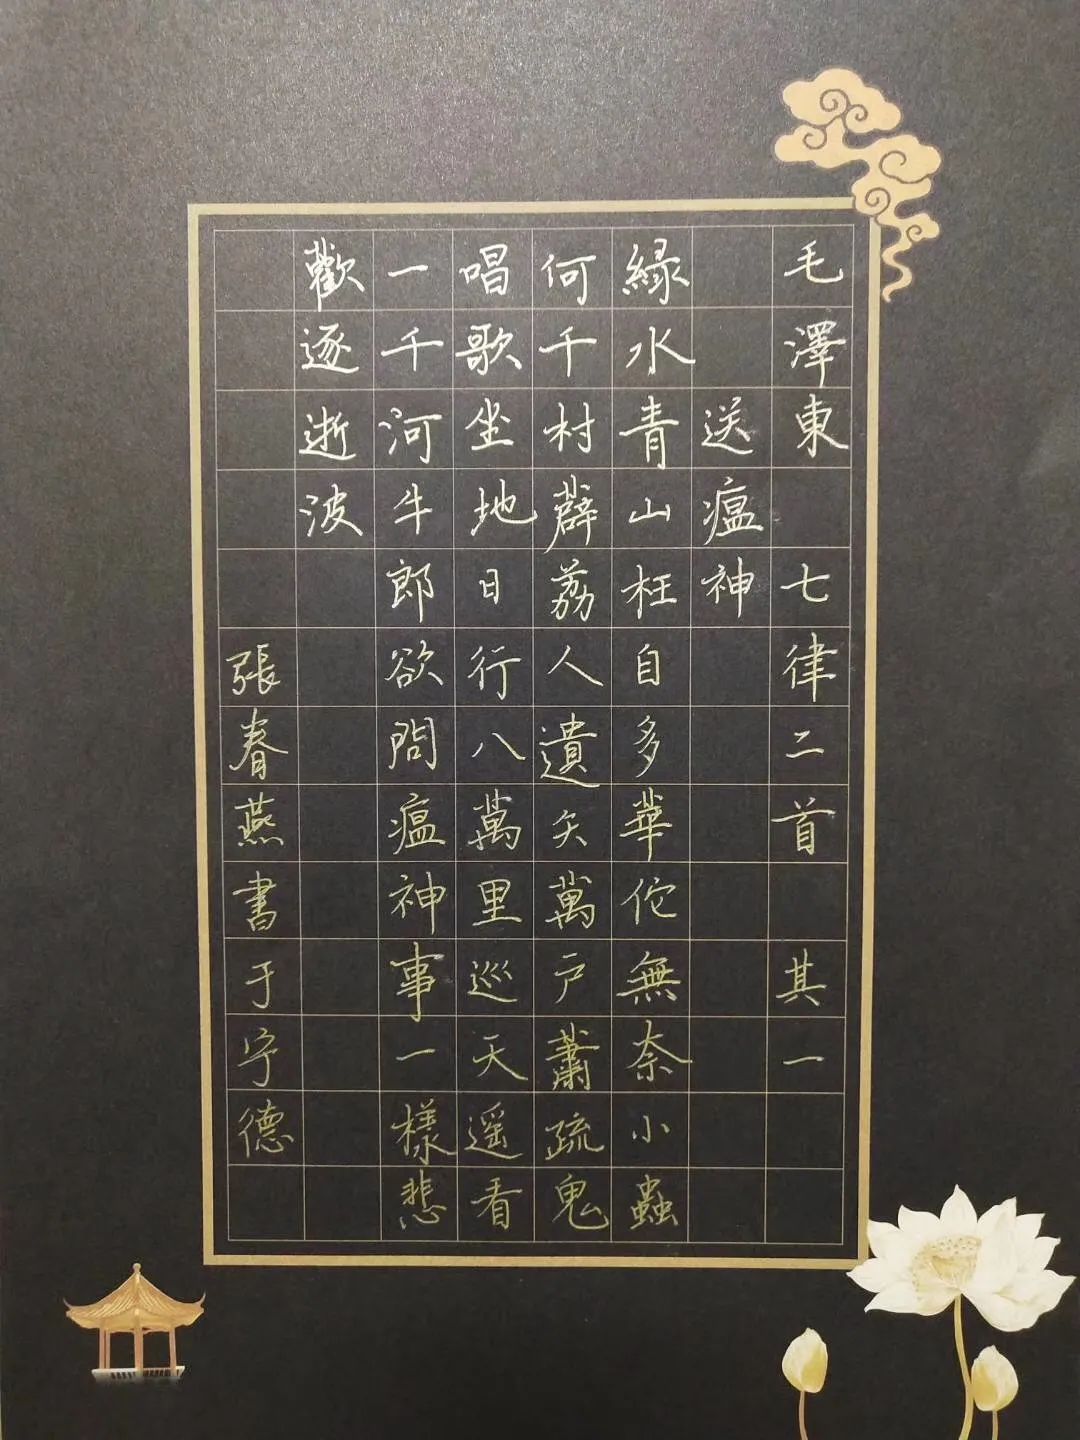 毛澤東 七律二首 其一
送瘟神
緑水青山枉自多華佗無奈小蟲
何千村薜荔人遺矢萬戶蕭疏鬼
唱歌坐地日行八萬里巡天遥看
一千河牛郎欲問瘟神事一樣悲
歡逐逝波
張春燕書于宁德